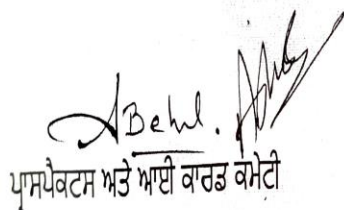 ABehl.
ਪ੍ਰਾਸਪੈਕਟਸ ਅਤੇ ਆਈ ਕਾਰਡ ਕਮੇਟੀ